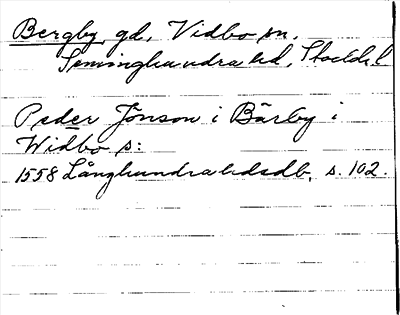 Bergby, gd, Vidbo sn,
Seminghundra hd, Sthlms l
Peder Jönson i Bärby i
Widbo s:
1558 Långhundra hdsdb, s. 102.